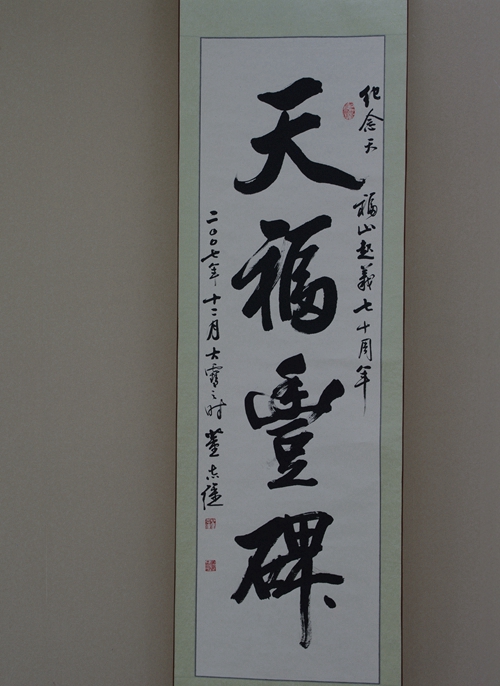 纪念天福山起義七十周年
天福豐碑
二〇〇七年十二月大雪之时